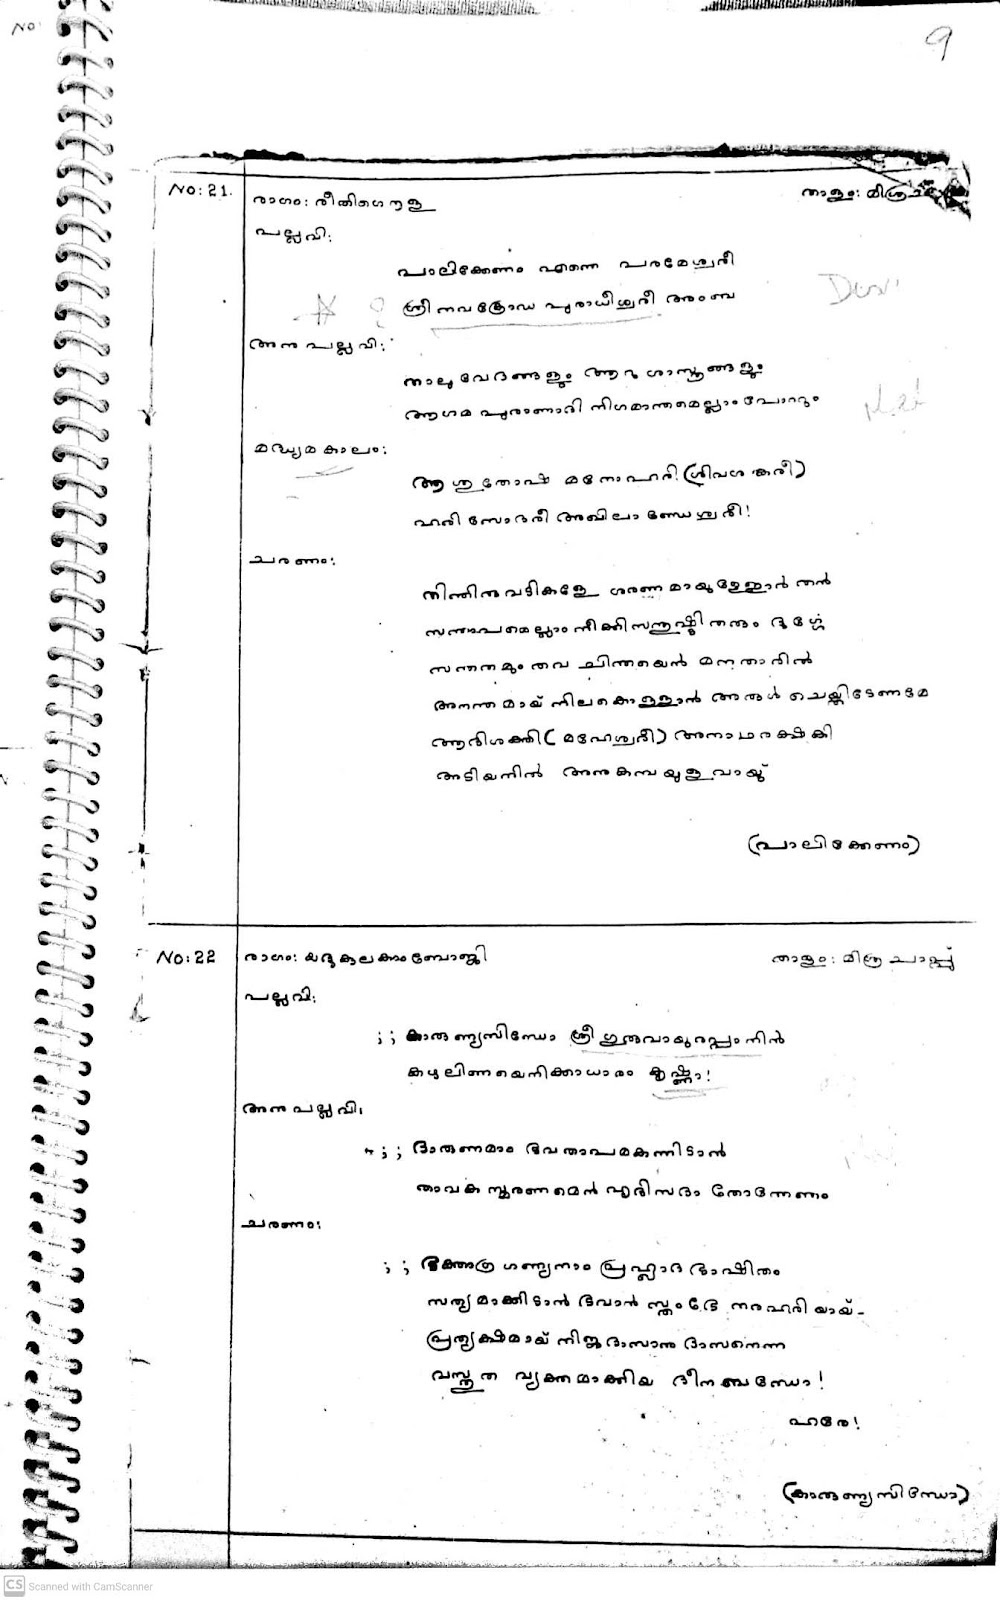 No:
9
No: 21.
രാഗം: രീതിഗൌള
താളം: മിശ്ര
പല്ലവി:
പാലിക്കേണം എന്നെ പരമേശ്വരീ
ശ്രീ നവക്രോഡ പുരാധീശ്വരീ അംബ
Devi
അനുപല്ലവി:
നാലു വേദങ്ങളും ആറു ശാസ്ത്രങ്ങളും
ആഗമ പുരാണാദി നിഗമാന്തമെല്ലാം പോറ്റും
മദ്ധ്യമകാലം:
ആശുതോഷ മനോഹരി (ശ്രിവശങ്കരീ)
ഹരി സോദരീ അഖിലാണ്ഡേശ്വരീ!
ചരണം:
നിന്തിരുവടികളേ ശരണമായുള്ളോൻ തൻ
സന്താപമെല്ലാം നീക്കി സന്തുഷ്ടി തരും ദുർഗ്ഗേ
സന്തതമും തവ ചിന്തയെൻ മനതാരിൽ
അനന്തമായ് നിലകൊള്ളാൻ അരുൾ ചെയ്തിടേണമേ
ആദിശക്തി (മഹേശ്വരീ) അനാഥരക്ഷകി
അടിയനിൽ അനുകമ്പയുളവായ്
(പാലിക്കേണം)
No: 22
രാഗം: യദുകുലകാംബോജി
താളം: മിശ്ര ചാപ്പ്
പല്ലവി:
; ; കാരുണ്യസിന്ധോ ശ്രീ ഗുരുവായുരപ്പം നിൻ
കഴലിണയെനിക്കാധാരം കൃഷ്ണാ!
അനുപല്ലവി:
; ; ദാരുണമാം ഭവതാപമകന്നിടാൻ
താവക സ്മരണമെൻ ഹൃദിസദാ തോന്നേണം
ചരണം:
; ; ഭക്താഗ്രഗണ്യനാം പ്രഹ്ലാദ ഭാഷിതം
സത്യമാക്കിടാൻ ഭവാൻ സ്തംഭേ നരഹരിയായ്-
പ്രത്യക്ഷമായ് നിജദാസാനുദാസനെന്ന
വസ്തുത വ്യക്തമാക്കിയ ദീനബന്ധോ!
ഹരേ!
(കാരുണ്യസിന്ധോ)
CS Scanned with CamScanner